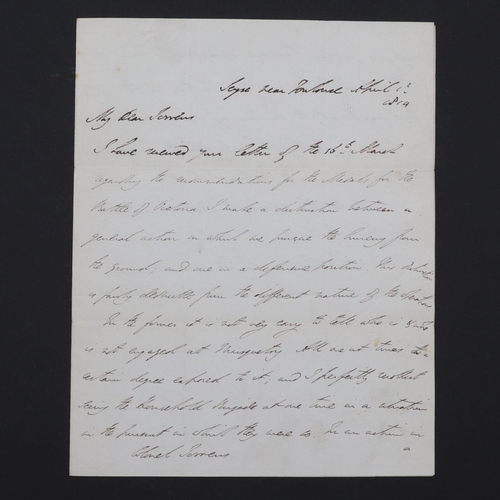 Seyse near Toulouse April 1st
1814
My Dear Torrens
I have received your letter of the 16th March
regarding the recommendations for the Medals for the
Battle of Vittoria. I make a distinction between a
general action in which we pursue the Enemy from
the ground, and one in a defensive position. This distinction
is fairly deducible from the different nature of the operations
In the former it is not very easy to tell who is & who
is not engaged at Musquetry. All are at times to a
certain degree exposed to it; and I perfectly recollect
seeing the Household Brigade at one time in a situation
in the pursuit in which they were so. In an action in
a
Colonel Torrens